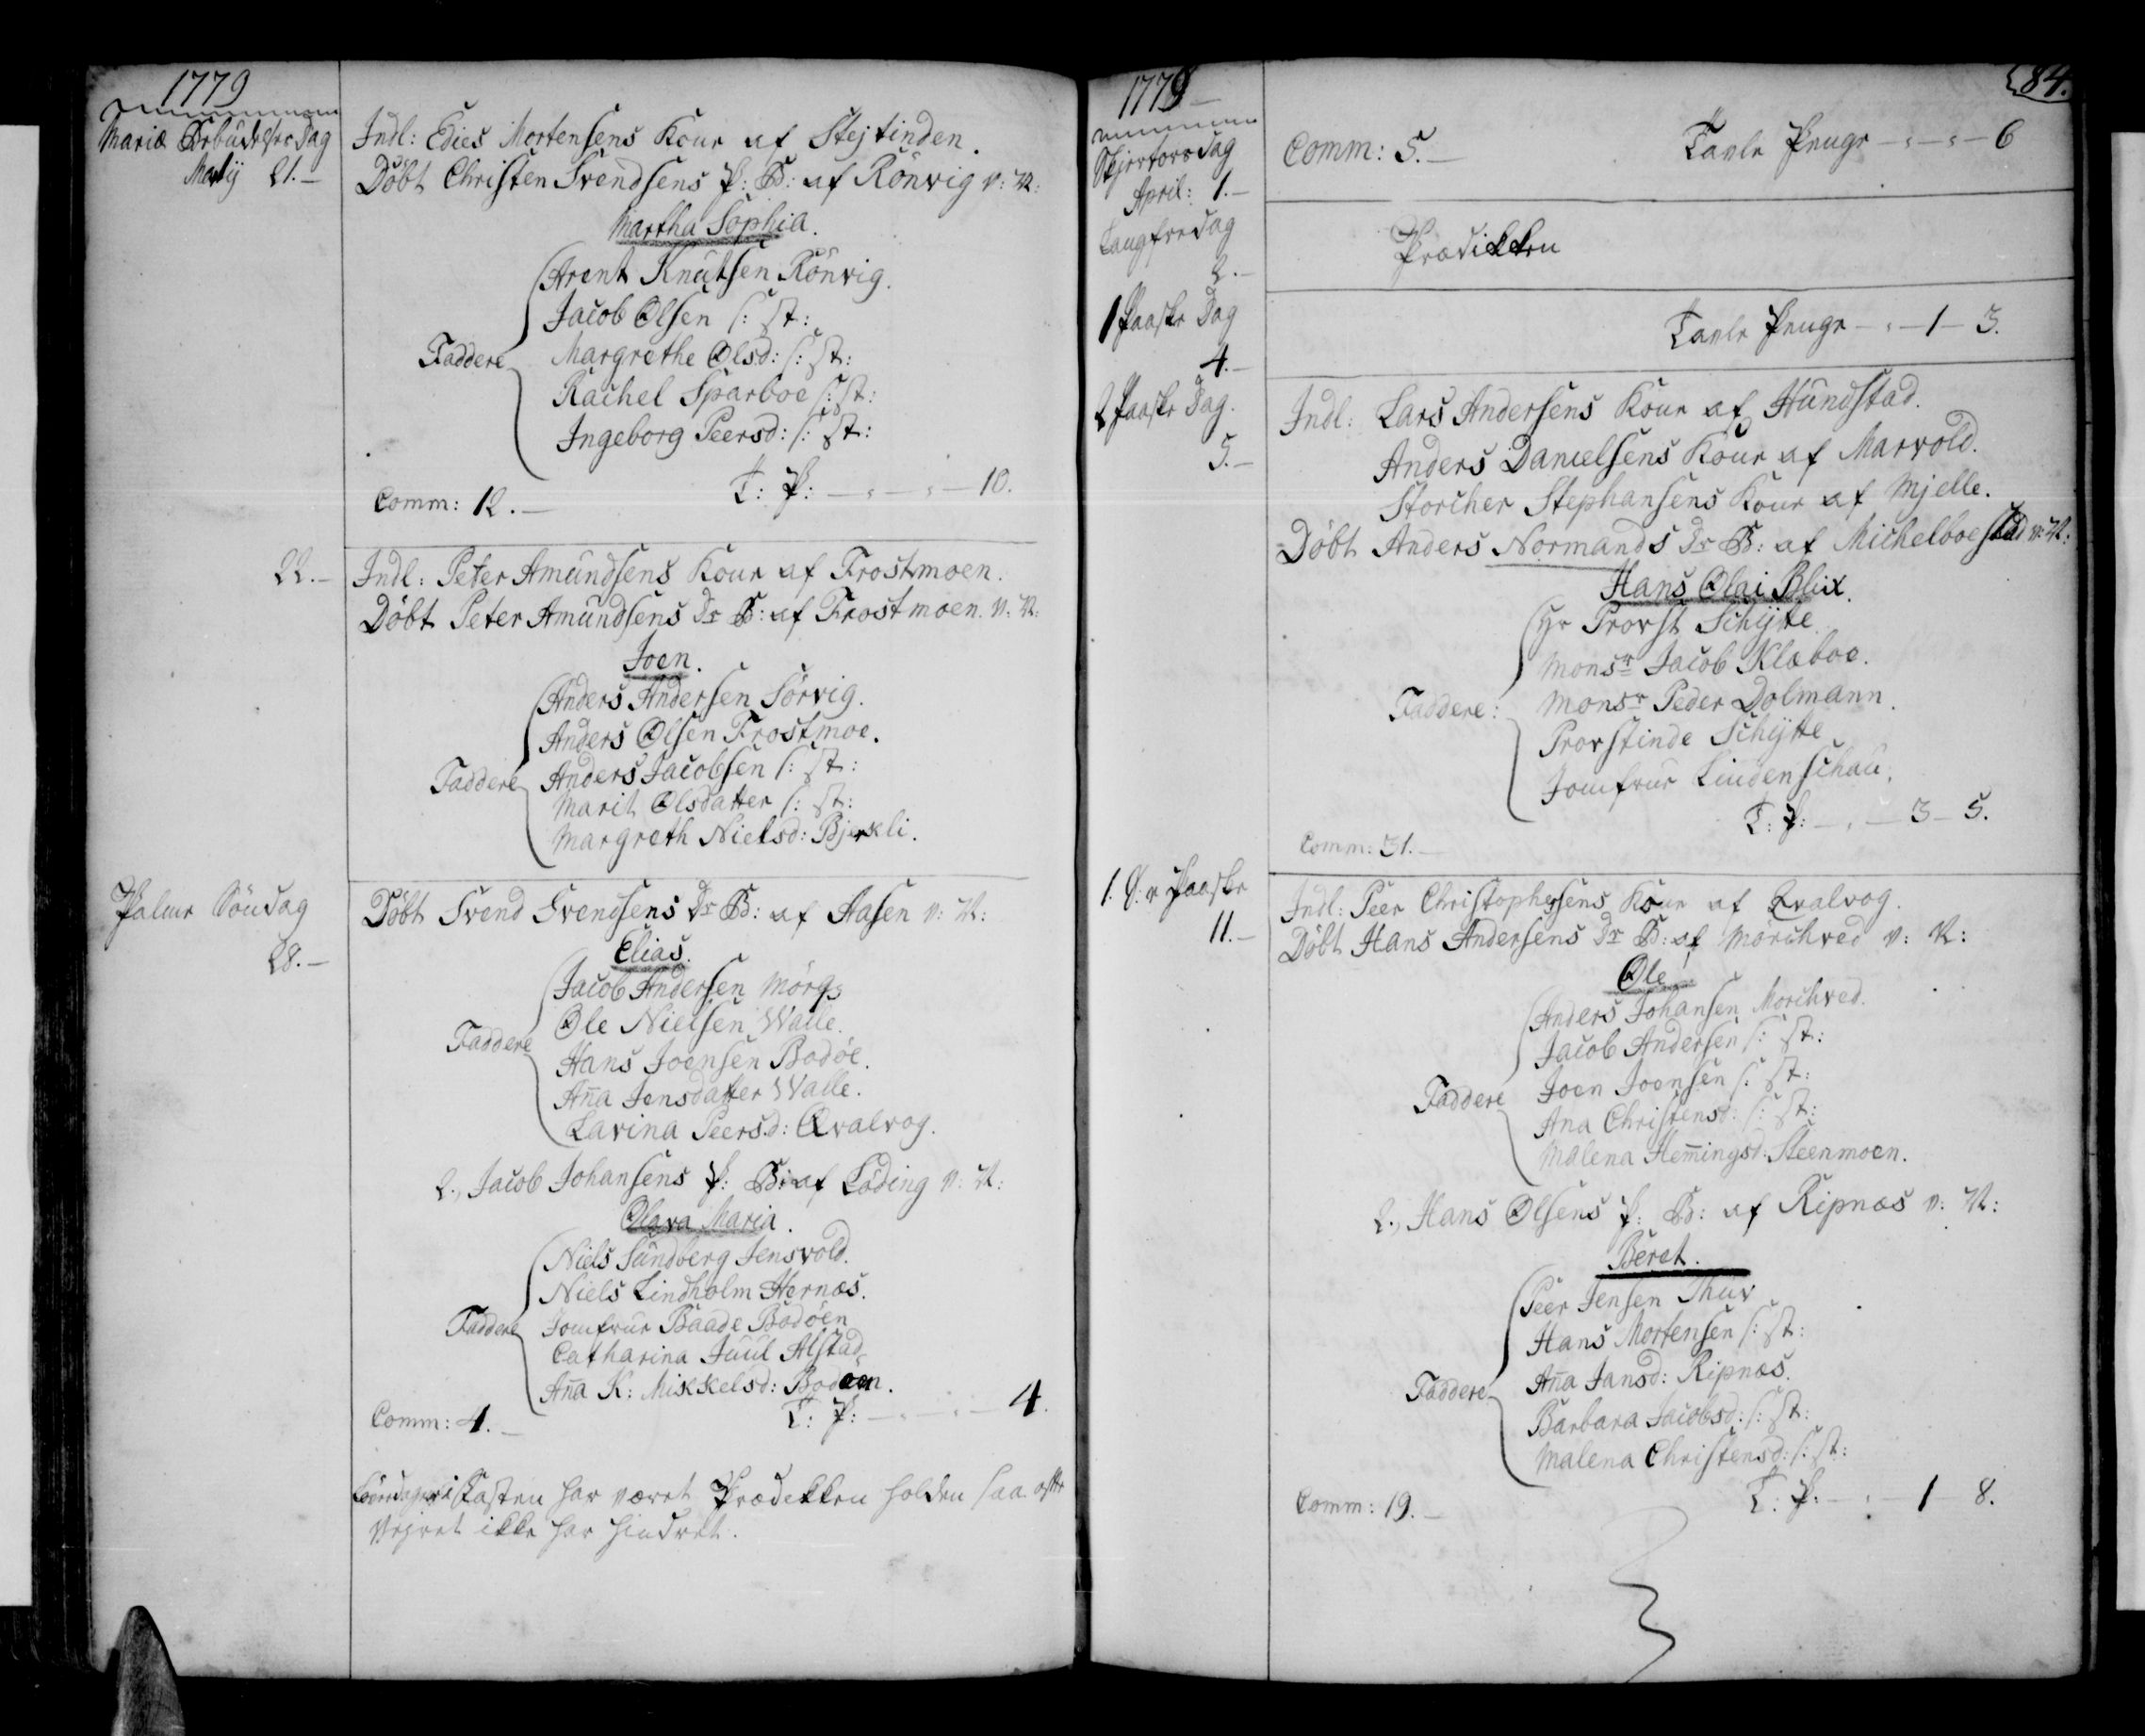 1779
Mariæ Bebudelses Dag
Martij 21.-
Indl: Edies Mortensens Kone af Stejtinden.
Döbt Christen Svendsens P: B: af Rönvig v: N:
Martha Sophia.
Arent Knutsen Rönvig.
Jacob Olsen s: st:
Faddere Margrethe Olsd: s: st:
Rachel Sparboe s: st:
Ingeborg Peersd: s: st:
Comm: 12.- T: P: - " - " - 10.
22.- Indl: Peter Amundsens Kone af Frostmoen.
Döbt Peter Amundsens Dr B: af Frostmoen. v: N:
Joen.
Anders Andersen Sörvig.
Anders Olsen Frostmoe.
Faddere Anders Jacobsen s: st:
Marit Olsdatter s: st:
Margreth Nielsd: Bjerkli.
Palme Söndag
28.-
Döbt Svend Svendsens Dr B: af Aasen v: N:
Elias.
Jacob Andersen
Ole Nielsen Walle.
Faddere Hans Joensen Bodöe.
Aña Jensdatter Walle.
Lavina Peersd: Qvalvog.
2., Jacob Johansens P: B: af Löding v: N:
Olava Maria.
Niels Sundberg Jensvold.
Niels Lindholm Hernæs.
Faddere Jomfrue Baade Bodöen
Catharina Juul Alstad.
Aña K: Mikkelsd: Bodöen.
Comm: 4.- T: P: - " - " - 4.
i Fasten har været Prædikken holden saa ofte
Vejret ikke har hindret.
1779
84.
Skjertorsdag
April: 1.-
Comm: 5.- Tavle Penge - " - " - 6
Langfredag
2.-
Prædikken
1 Paaske Dag
4.-
Tavle Penge - " - 1 - 3.
2 Paaske Dag.
5.-
Indl: Lars Andersens Kone af Hundstad.
Anders Danielsens Kone af Marvold.
Storcher Stephansens Kone af Mjelle.
Döbt Anders Normands Dr B: af Michelboestad v: N:
Hans Olai Blix.
Hr Provst Schytte
Monsr Jacob Klæboe.
Faddere: Monsr Peder Dolmann.
Provstinde Schytte
Jomfrue Lindenschau.
T: P: - " - 3 - 5.
Comm: 31.-
1. S: e Paaske
11.-
Indl: Peer Christophersens Kone af Qvalvog.
Döbt Hans Andersens Dr B: af Mörchved v: N:
Ole
Anders Johansen Morchved.
Jacob Andersen s: st:
Faddere Joen Joensen s: st:
Ana Christensd: s: st:
Malena Hem̄ingsd: Steenmoen.
2., Hans Olsens P: B: af Ripnæs v: N:
Beret.
Peer Jensen Thuv
Hans Mortensen s: st:
Faddere Aña Jansd: Ripnæs.
Barbara Jacobsd: s: st:
Malena Christensd: s: st:
Comm: 19.- T: P: - " - 1 - 8.